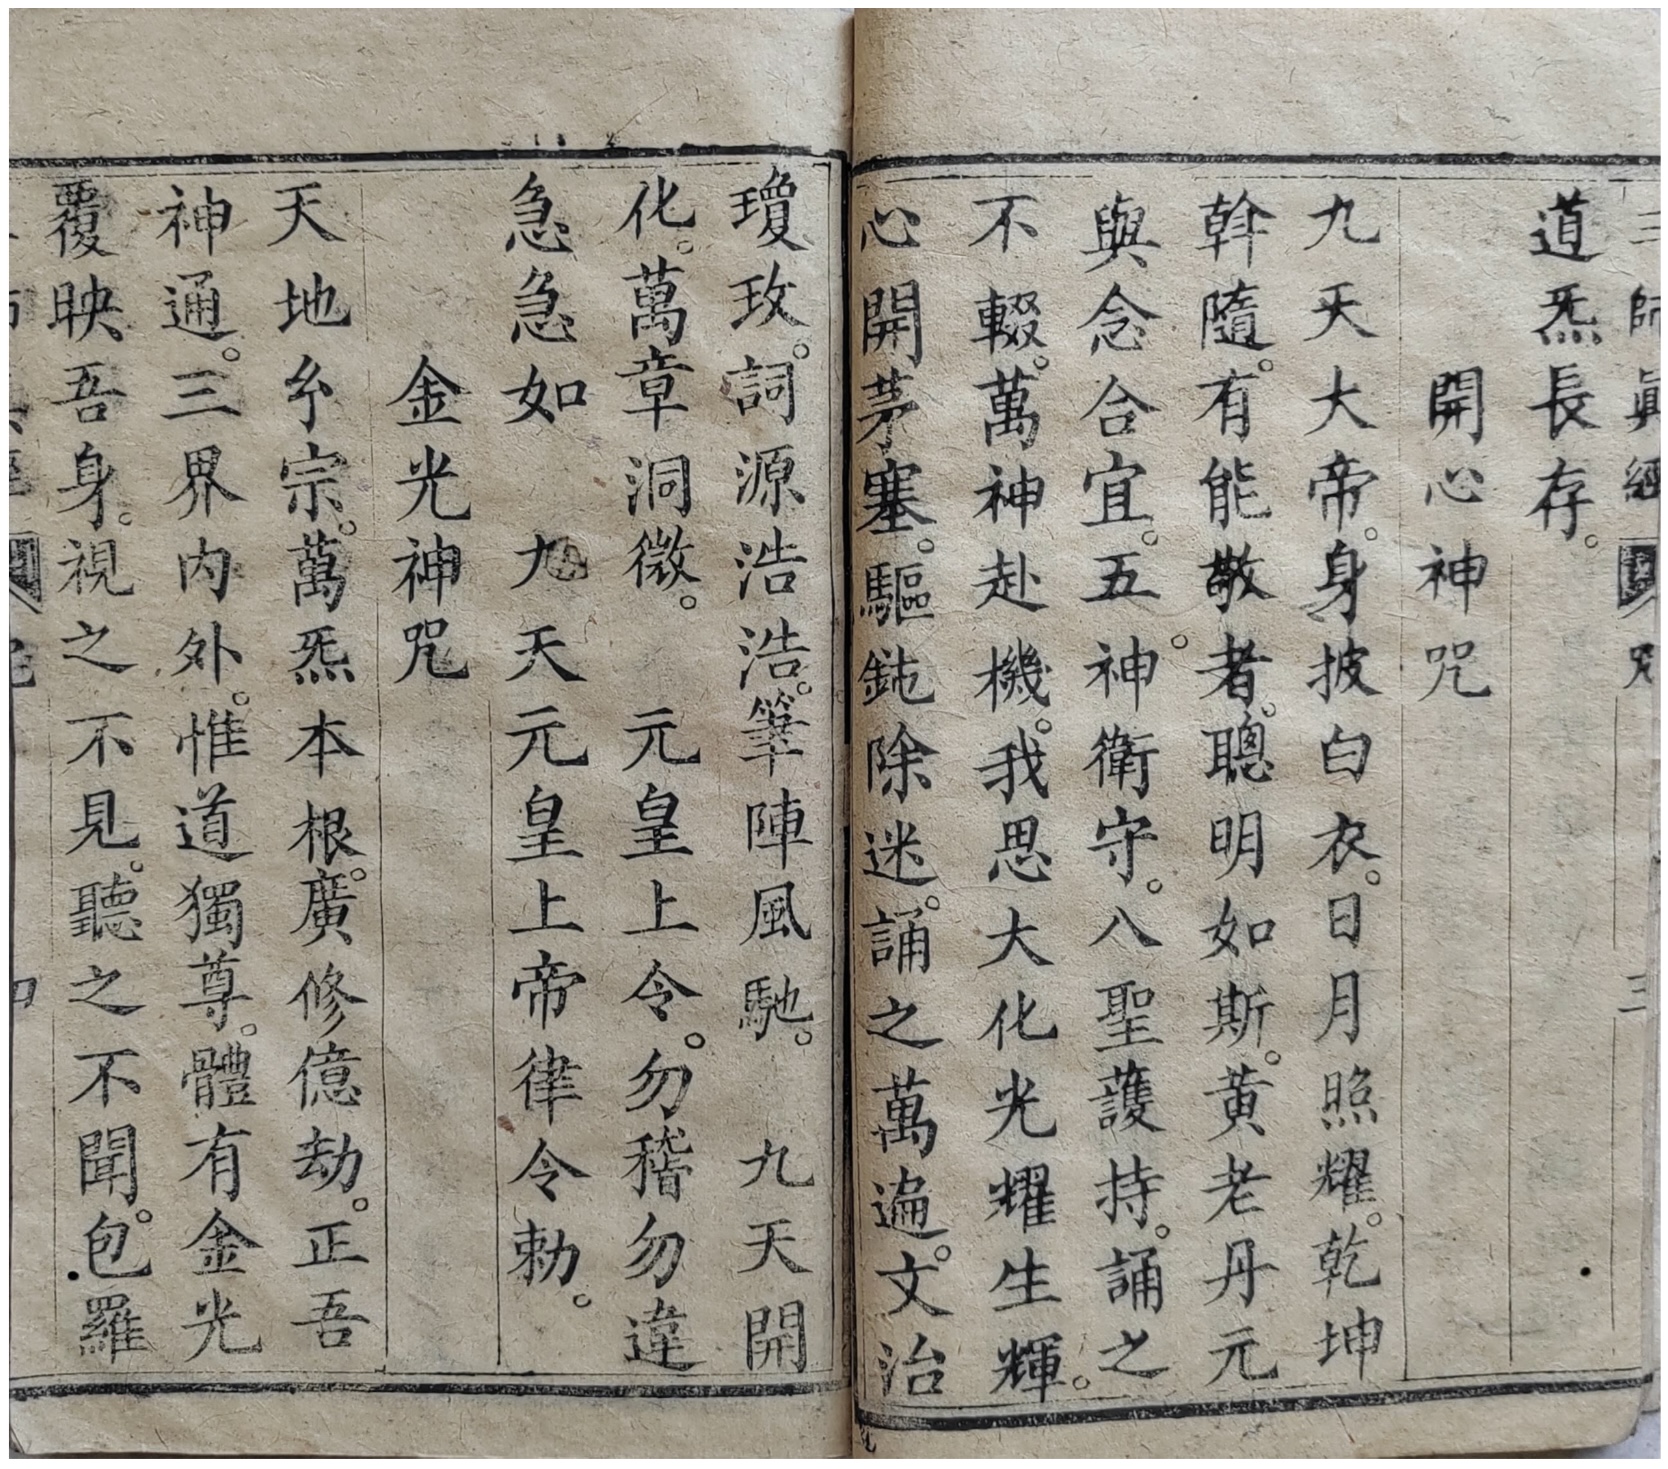 三師真經 咒 三
道炁長存。
開心神咒
九天大帝。身披白衣。日月照耀。乾坤
斡隨。有能敬者。聰明如斯。黄老丹元
與念合宜。五神衛守。八聖護持。誦之
不輟。萬神赴機。我思大化光耀生輝。
心開茅塞。驅鈍除迷。誦之萬遍。文治
瓊玫。詞源浩浩。筆陣風馳。九天開
化。萬章洞微。元皇上令。勿稽勿違
急急如九天元皇上帝律令勅。
金光神咒
天地玄宗。萬炁本根。廣修億劫。正吾
神通。三界内外。惟道獨尊。體有金光
覆映吾身。視之不見。聽之不聞。包羅